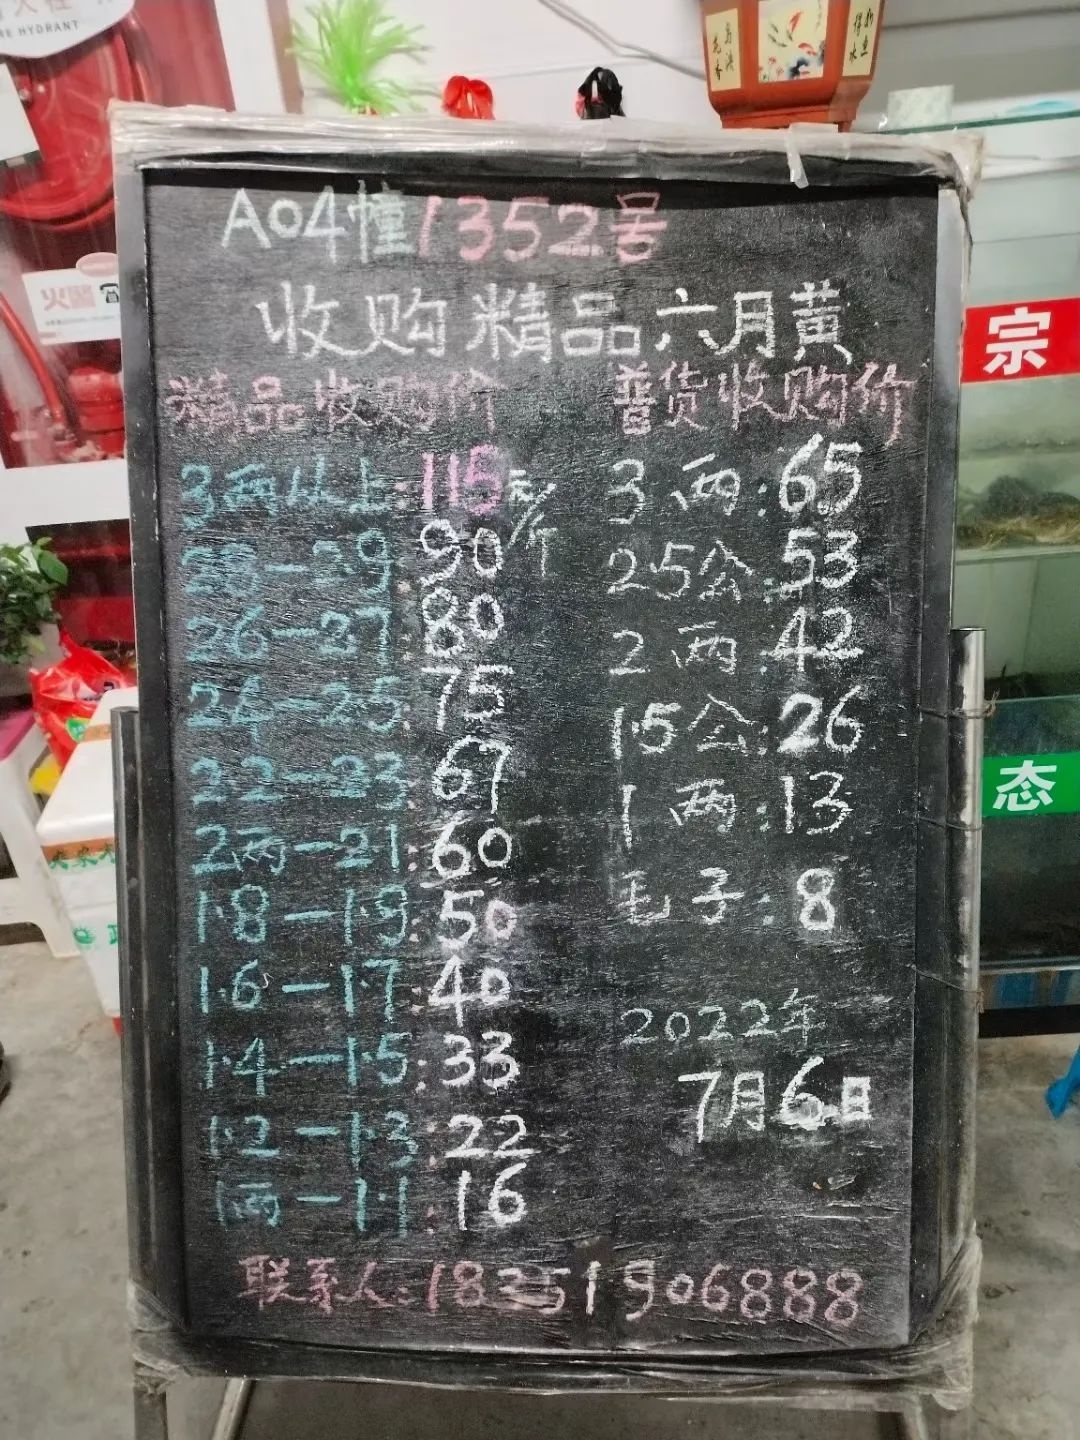 RE HYDRANT
火警
A04幢1352号
收购精品六月黄
精品收购价
3两以上:115元/斤
28-29:90
26-27:80
24-25:75
22-23:67
2两-21:60
1.8-1.9:50
1.6-1.7:40
1.4-1.5:33
1.2-1.3:22
1两-1.1:16
普货收购价
3两:65
2.5公:53
2两:42
1.5公:26
1两:13
毛子:8
2022年
7月6日
联系人:18351906888
宗
态